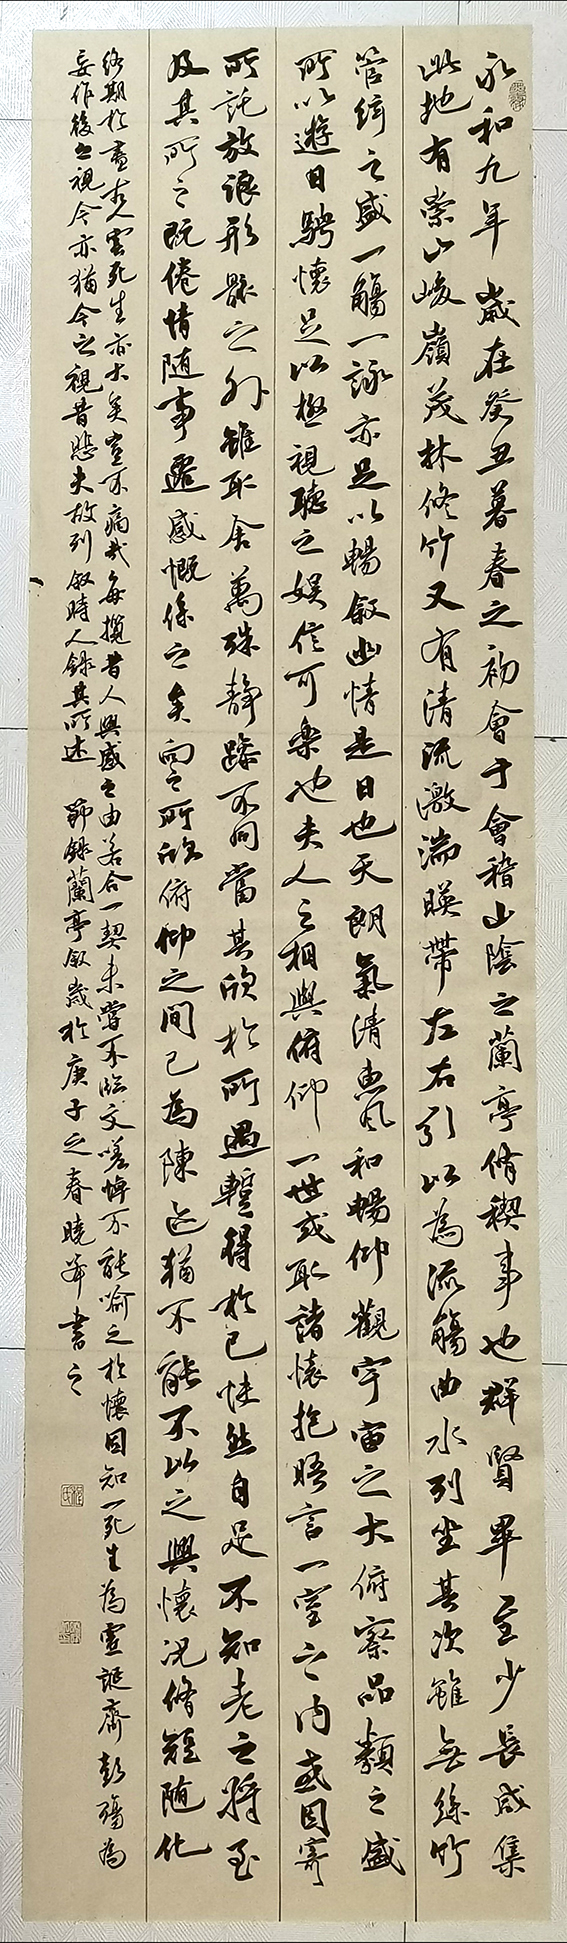 永和九年歲在癸丑暮春之初會于會稽山陰之蘭亭脩稧事也群賢畢至少長咸集
此地有崇山峻嶺茂林脩竹又有清流激湍暎帶左右引以為流觴曲水列坐其次雖無絲竹
管絃之盛一觴一詠亦足以暢敘幽情是日也天朗氣清惠風和暢仰觀宇宙之大俯察品類之盛
所以遊目騁懷足以極視聽之娛信可樂也夫人之相與俯仰一世或取諸懷抱晤言一室之內或因寄
所託放浪形骸之外雖取舍萬殊靜躁不同當其欣於所遇暫得於己怏然自足不知老之將至
及其所之既倦情隨事遷感慨係之矣向之所欣俯仰之間已為陳迹猶不能不以之興懷況脩短隨化
終期於盡古人云死生亦大矣豈不痛哉每攬昔人興感之由若合一契未嘗不臨文嗟悼不能喻之於懷固知一死生為虛誕齊彭殤為
妄作後之視今亦猶今之視昔悲夫故列敘時人錄其所述 節錄蘭亭敘歲於庚子之春曉華書之